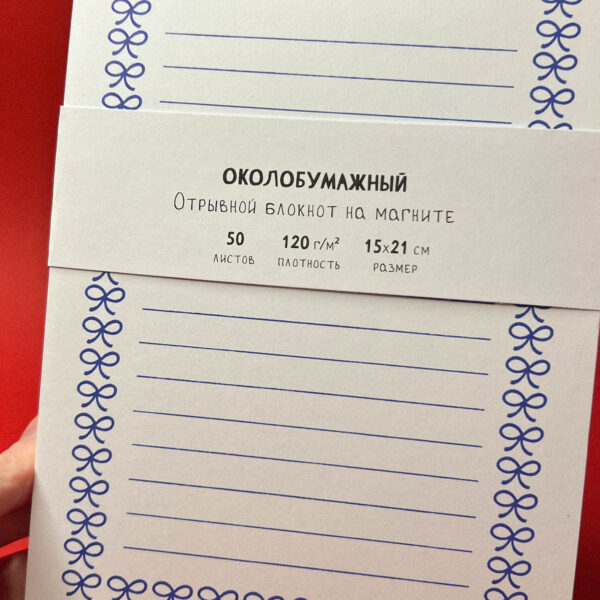 ОКОЛОБУМАЖНЫЙ
Отрывной блокнот на магните
50 120 г/м² 15х21 см
листов плотность размер